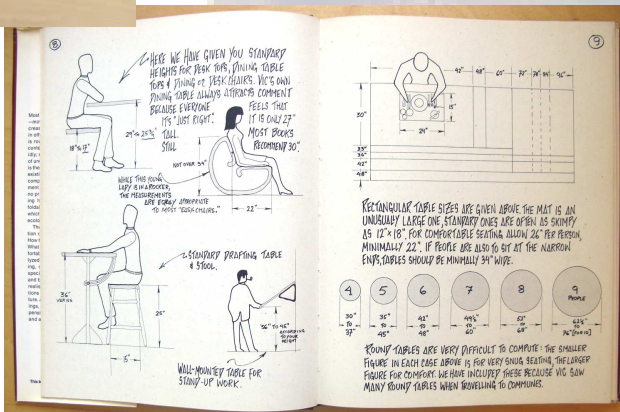 8
HERE WE HAVE GIVEN YOU STANDARD
HEIGHTS FOR DESK TOPS, DINING TABLE
TOPS & DINING OR DESK CHAIRS. VIC'S OWN
DINING TABLE ALWAYS ATTRACTS COMMENT
BECAUSE EVERYONE FEELS THAT
IT'S "JUST RIGHT". IT IS ONLY 27"
TALL. MOST BOOKS
STILL RECOMMEND 30".
NOT OVER 34"
WHILE THIS YOUNG
LADY IS IN A ROCKER,
THE MEASUREMENTS
ARE EQUALLY APPROPRIATE
TO MOST "EASY-CHAIRS."
22"
STANDARD DRAFTING TABLE
& STOOL.
36"
VARIES
26"
15"
36" TO 46"
ACCORDING
TO YOUR
HEIGHT
WALL-MOUNTED TABLE FOR
STAND-UP WORK.
9
42" 48" 60" 72" 78" 84" 96"
30"
15"
24"
33"
36"
42"
48"
RECTANGULAR TABLE SIZES ARE GIVEN ABOVE. THE MAT IS AN
UNUSUALLY LARGE ONE, STANDARD ONES ARE OFTEN AS SKIMPY
AS 12"X 18". FOR COMFORTABLE SEATING ALLOW 26" PER PERSON,
MINIMALLY 22". IF PEOPLE ARE ALSO TO SIT AT THE NARROW
ENDS, TABLES SHOULD BE MINIMALLY 34" WIDE.
4 5 6 7 8 9
PEOPLE
30" TO 37"
35" TO 45"
42" TO 48"
49½" TO 60"
TO
TO
ROUND TABLES ARE VERY DIFFICULT TO COMPUTE: THE SMALLER
FIGURE IN EACH CASE ABOVE IS FOR VERY SNUG SEATING, THE LARGER
FIGURE FOR COMFORT. WE HAVE INCLUDED THESE BECAUSE VIC SAW
MANY ROUND TABLES WHEN TRAVELLING TO COMMUNES.